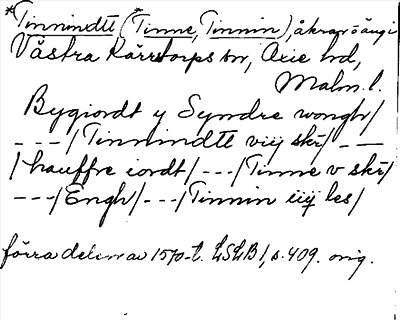 *Tinnindtt (*Tinne, Tinnin), åkrar o äng i
Västra Kärrstorps sn, Oxie hd,
Malm. l.
Bygiordt y Syndre wongh/
---/Tinnindtt viij skr/---
/hauffre iordt/---/Tinne v skr/
---/Engh/---/Tinnin iiij les/
förra delen av 1570-t. LSLB 1, s. 409. orig.